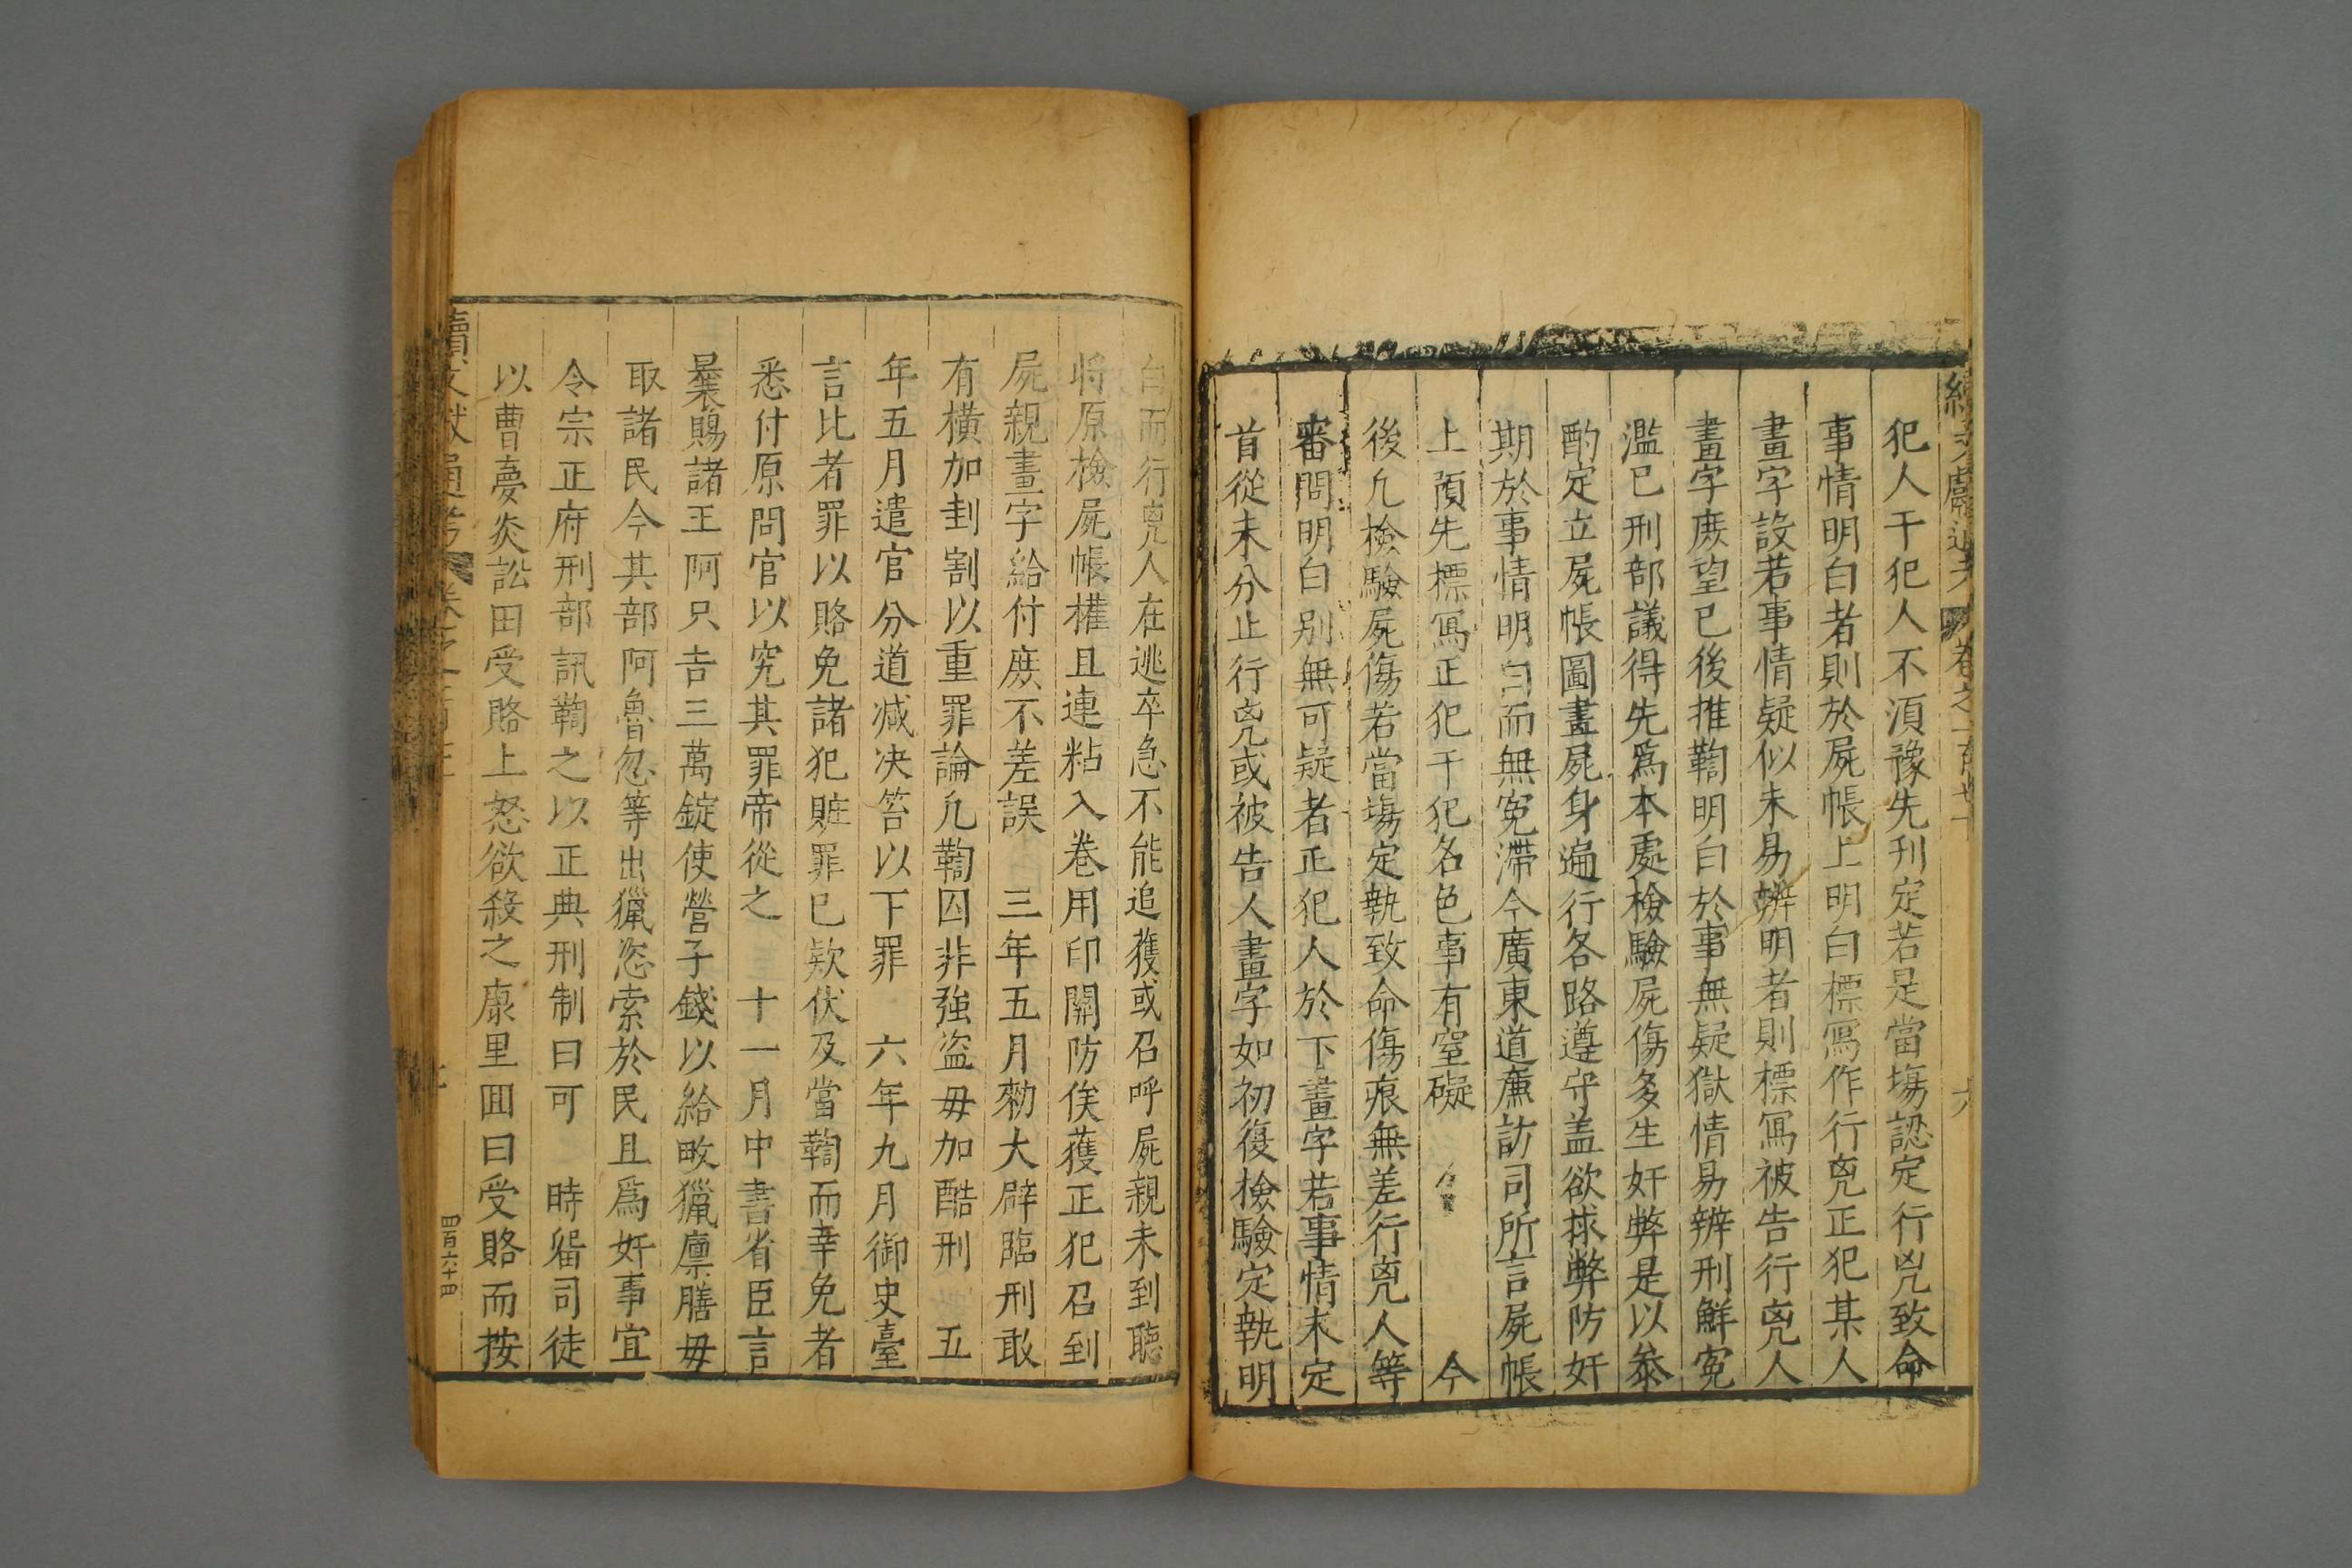 犯人干犯人不湏豫先刋定若是當塲認定行兇致命
事情明白者則於屍帳上明白標寫作行兇正犯某人
畫字設若事情疑似未易辨明者則標寫被告行兇人
畫字庻望已後推鞫明白於事無疑獄情易辨刑鮮寃
濫已刑部議得先爲本處檢驗屍傷多生奸弊是以叅
酌定立屍帳圖畫屍身遍行各路遵守盖欲捄弊防奸
期於事情明白而無寃滯今廣東道廉訪司所言屍帳
上預先標寫正犯干犯名色事有窒礙 今
後凡檢驗屍傷若當塲定執致命傷痕無差行兇人等
審問明白别無可疑者正犯人於下畫字若事情未定
首從未分止行兇或被告人畫字如初復檢驗定執明
白而行兇人在逃卒急不能追獲或召呼屍親未到聽
将原檢屍帳權且連粘入卷用印關防俟獲正犯召到
屍親畫字給付庻不差誤 三年五月勑大辟臨刑敢
有横加刲割以重罪論凡鞫囚非強盗毋加酷刑 五
年五月遣官分道减决笞以下罪 六年九月御史臺
言比者罪以賂免諸犯賍罪已欵伏及當鞫而幸免者
悉付原問官以究其罪帝從之 十一月中書省臣言
曩賜諸王阿只吉三萬錠使營子錢以給畋獵廪膳毋
取諸民今其部阿魯忽等出獵恣索於民且爲奸事宜
令宗正府刑部訊鞫之以正典刑制曰可 時畱司徒
以曹夢炎訟田受賂上怒欲殺之康里囬曰受賂而按
續文獻通考